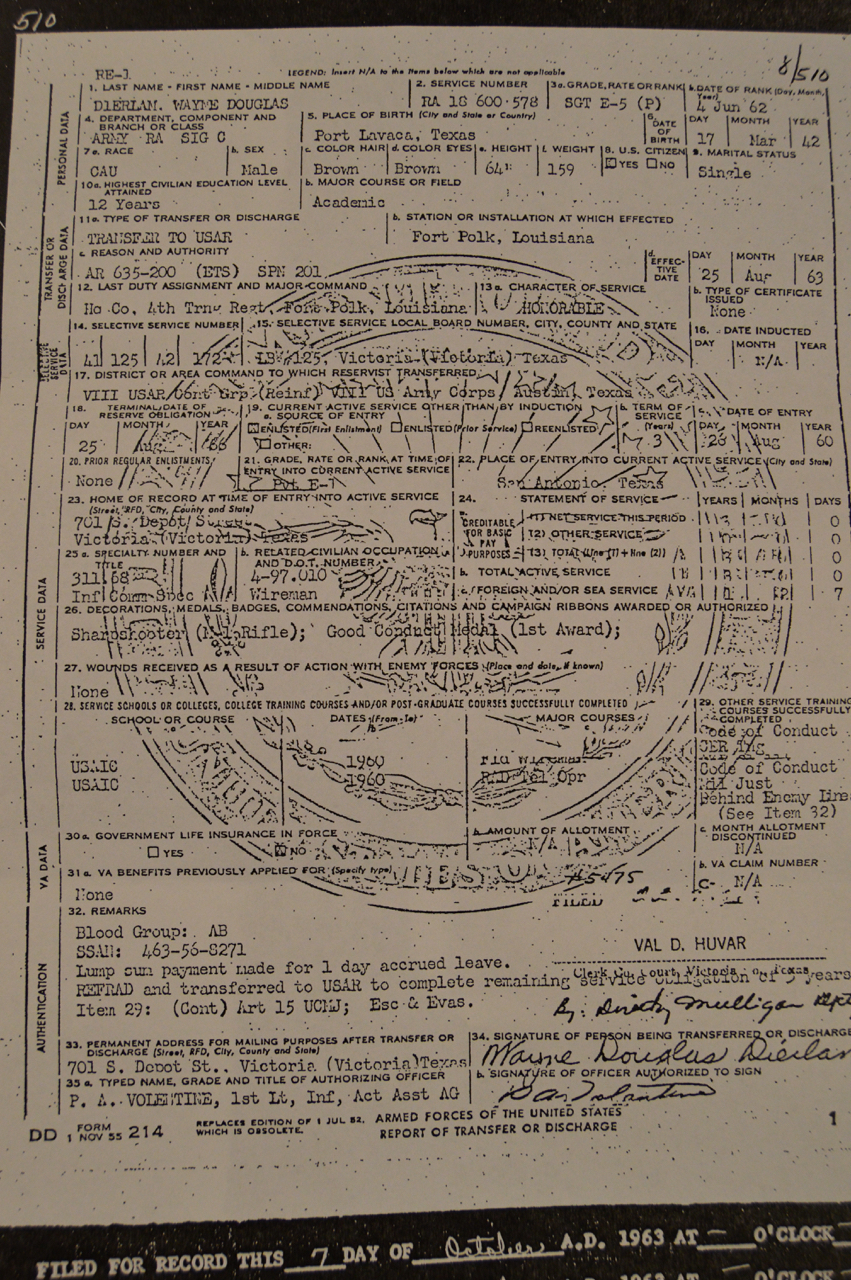 510
8/510
RE-1
LEGEND: Insert N/A to the items below which are not applicable
PERSONAL DATA
1. LAST NAME - FIRST NAME - MIDDLE NAME
DIERLAM. WAYNE DOUGLAS
2. SERVICE NUMBER
RA 18 600 578
3a. GRADE, RATE OR RANK
SGT E-5 (P)
b. DATE OF RANK (Day, Month, Year)
4 Jun 62
4. DEPARTMENT, COMPONENT AND BRANCH OR CLASS
ARMY RA SIG C
5. PLACE OF BIRTH (City and State or Country)
Port Lavaca, Texas
6. DATE OF BIRTH
DAY MONTH YEAR
17 Mar 42
7a. RACE
CAU
b. SEX
Male
c. COLOR HAIR
Brown
d. COLOR EYES
Brown
e. HEIGHT
64"
f. WEIGHT
159
8. U.S. CITIZEN
YES NO
9. MARITAL STATUS
Single
10a. HIGHEST CIVILIAN EDUCATION LEVEL ATTAINED
12 Years
b. MAJOR COURSE OR FIELD
Academic
TRANSFER OR DISCHARGE DATA
11a. TYPE OF TRANSFER OR DISCHARGE
TRANSFER TO USAR
b. STATION OR INSTALLATION AT WHICH EFFECTED
Fort Polk, Louisiana
c. REASON AND AUTHORITY
AR 635-200 (ETS) SPN 201
d. EFFECTIVE DATE
DAY MONTH YEAR
25 Aug 63
12. LAST DUTY ASSIGNMENT AND MAJOR COMMAND
Hq Co, 4th Trng Regt, Fort Polk, Louisiana
13a. CHARACTER OF SERVICE
HONORABLE
b. TYPE OF CERTIFICATE ISSUED
None
SELECTIVE SERVICE DATA
14. SELECTIVE SERVICE NUMBER
41 125 42 172
15. SELECTIVE SERVICE LOCAL BOARD NUMBER, CITY, COUNTY AND STATE
LB 125, Victoria (Victoria) Texas
16. DATE INDUCTED
DAY MONTH YEAR
N/A
17. DISTRICT OR AREA COMMAND TO WHICH RESERVIST TRANSFERRED
VIII USAR Cont Grp (Reinf) VIII US Army Corps Austin, Texas
SERVICE DATA
18. TERMINAL DATE OF RESERVE OBLIGATION
DAY MONTH YEAR
25 Aug 66
19. CURRENT ACTIVE SERVICE OTHER THAN BY INDUCTION
a. SOURCE OF ENTRY
ENLISTED (First Enlistment) ENLISTED (Prior Service) REENLISTED
OTHER:
b. TERM OF SERVICE (Years)
3
c. DATE OF ENTRY
DAY MONTH YEAR
26 Aug 60
20. PRIOR REGULAR ENLISTMENTS
None
21. GRADE, RATE OR RANK AT TIME OF ENTRY INTO CURRENT ACTIVE SERVICE
Pvt E-1
22. PLACE OF ENTRY INTO CURRENT ACTIVE SERVICE (City and State)
San Antonio, Texas
23. HOME OF RECORD AT TIME OF ENTRY INTO ACTIVE SERVICE
(Street, RFD, City, County and State)
701 S. Depot Street
Victoria (Victoria) Texas
24. STATEMENT OF SERVICE
YEARS MONTHS DAYS
a. CREDITABLE FOR BASIC PAY PURPOSES
(1) NET SERVICE THIS PERIOD 0
(2) OTHER SERVICE 0
(3) TOTAL (Line (1) + line (2)) 0
b. TOTAL ACTIVE SERVICE 0
c. FOREIGN AND/OR SEA SERVICE 7
25a. SPECIALTY NUMBER AND TITLE
311
Inf Comm Spec
b. RELATED CIVILIAN OCCUPATION AND D.O.T. NUMBER
4-97.010
Wireman
26. DECORATIONS, MEDALS, BADGES, COMMENDATIONS, CITATIONS AND CAMPAIGN RIBBONS AWARDED OR AUTHORIZED
Sharpshooter (M-1 Rifle); Good Conduct Medal (1st Award);
27. WOUNDS RECEIVED AS A RESULT OF ACTION WITH ENEMY FORCES (Place and date, if known)
None
28. SERVICE SCHOOLS OR COLLEGES, COLLEGE TRAINING COURSES AND/OR POST-GRADUATE COURSES SUCCESSFULLY COMPLETED
SCHOOL OR COURSE
DATES (From-To)
MAJOR COURSES
USAIC 1960
USAIC 1960 Opr
29. OTHER SERVICE TRAINING COURSES SUCCESSFULLY COMPLETED
Code of Conduct
CBR Tng
Code of Conduct
Mil Just
Behind Enemy Line
(See Item 32)
VA DATA
30a. GOVERNMENT LIFE INSURANCE IN FORCE
YES NO
b. AMOUNT OF ALLOTMENT
N/A
c. MONTH ALLOTMENT DISCONTINUED
N/A
31a. VA BENEFITS PREVIOUSLY APPLIED FOR (Specify type)
None
b. VA CLAIM NUMBER
C- N/A
FILED
AUTHENTICATION
32. REMARKS
Blood Group: AB
SSAN: 463-56-8271
Lump sum payment made for 1 day accrued leave.
REFRAD and transferred to USAR to complete remaining service obligation of 3 years
Item 29: (Cont) Art 15 UCMJ; Esc & Evas.
VAL D. HUVAR
Clerk Co. Court, Victoria Co., Texas
By: Dorothy Mulligan Dept
33. PERMANENT ADDRESS FOR MAILING PURPOSES AFTER TRANSFER OR DISCHARGE (Street, RFD, City, County and State)
701 S. Depot St., Victoria (Victoria) Texas
34. SIGNATURE OF PERSON BEING TRANSFERRED OR DISCHARGE
Wayne Douglas Dierlam
35a. TYPED NAME, GRADE AND TITLE OF AUTHORIZING OFFICER
P. A. VOLENTINE, 1st Lt, Inf, Act Asst AG
b. SIGNATURE OF OFFICER AUTHORIZED TO SIGN
DD FORM 1 NOV 55 214
REPLACES EDITION OF 1 JUL 52, WHICH IS OBSOLETE.
ARMED FORCES OF THE UNITED STATES
REPORT OF TRANSFER OR DISCHARGE
1
FILED FOR RECORD THIS 7 DAY OF October A.D. 1963 AT O'CLOCK